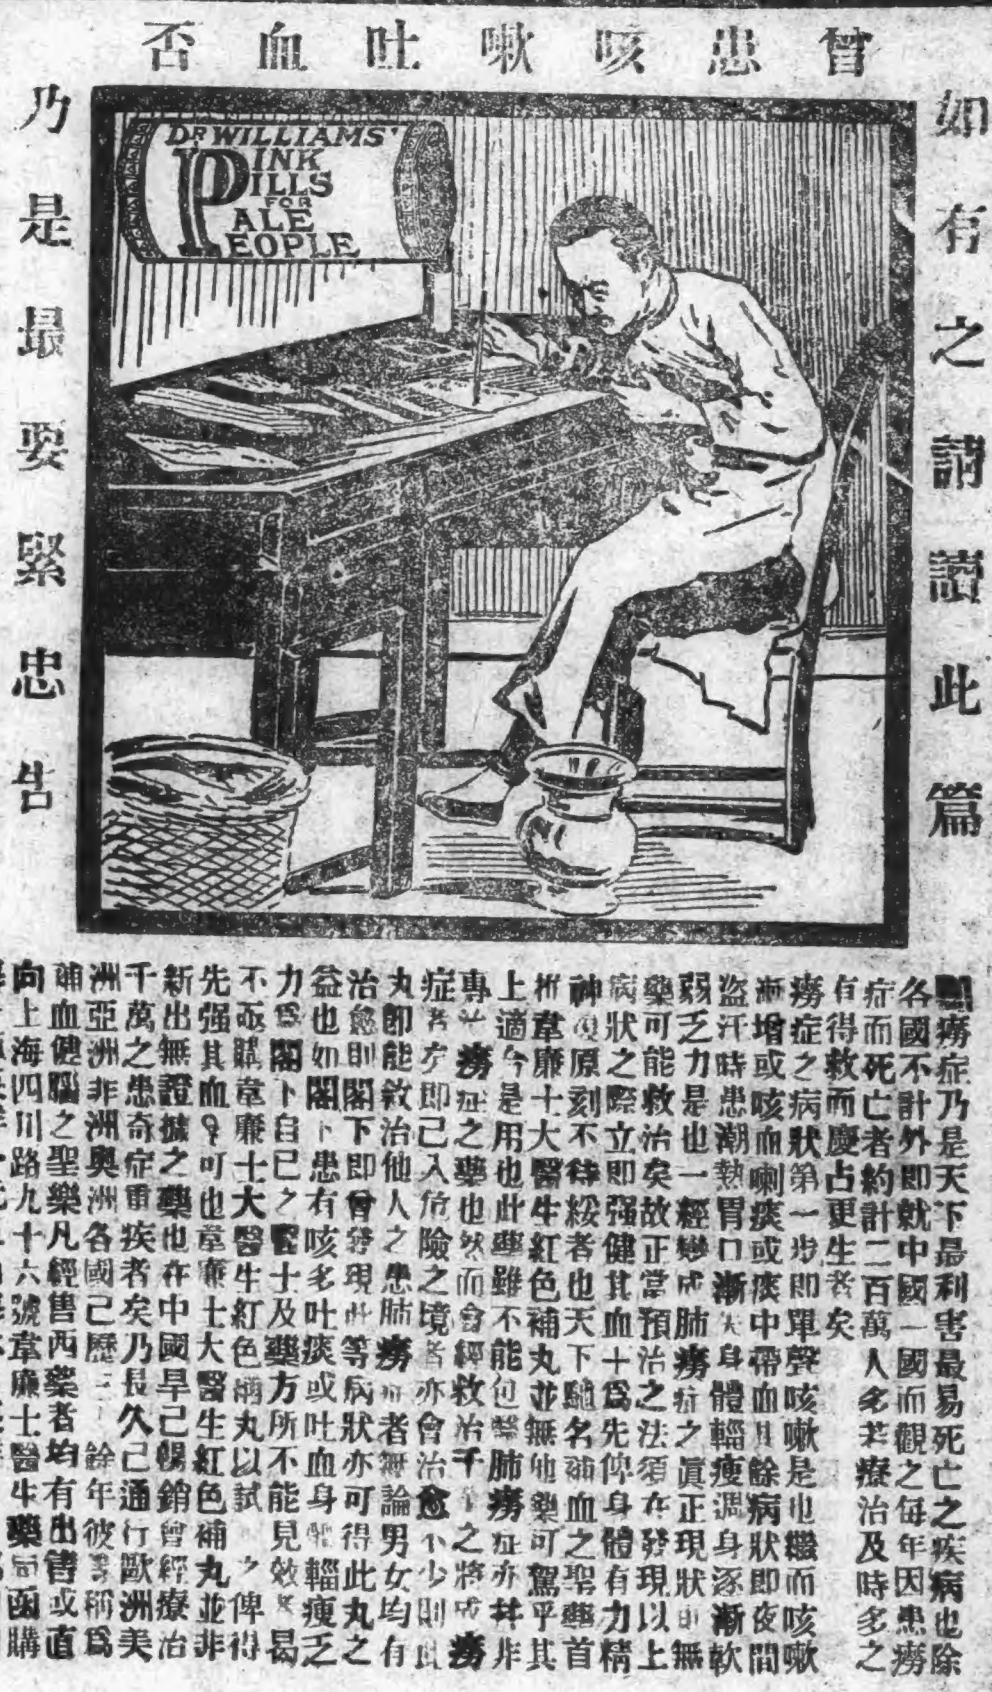 曾患咳嗽吐血否
如有之請讀此篇
乃是最要緊忠告
DR WILLIAMS'
PINK
PILLS
FOR
PALE
PEOPLE
癆症乃是天下最利害最易死亡之疾病也除
各國不計外即就中國一國而觀之每年因患癆
症而死亡者約計二百萬人多若療治及時多之
有得救而慶占更生者矣
癆症之病狀第一步即單聲咳嗽是也繼而咳嗽
漸增或咳血喇痰或痰中帶血其餘病狀即夜間
盜汗時患潮熱胃口漸失身體輜瘦週身逐漸軟
弱乏力是也一經變成肺癆症之眞正現狀即無
藥可能救治矣故正當預治之法須在發現以上
病狀之際立即强健其血十爲先俾身體有力精
神復原刻不待綏者也天下馳名補血之聖藥首
推韋廉士大醫生紅色補丸並無他藥可駕乎其
上適今是用也此藥雖不能包醫肺癆症亦幷非
專治癆症之藥也然而會經救治千之將成癆
症者亦即已入危險之境者亦會治愈不少則此
丸即能救治他人之患肺癆症者無論男女均有
治愈則閣下即曾發現此等病狀亦可得此丸之
益也如閣下患有咳多吐痰或吐血身體輜瘦乏
力爲閣下自已之醫士及藥方所不能見效曷
不亟購韋廉士大醫生紅色補丸以試之俾得
先强其血乎可也韋廉士大醫生紅色補丸並非
新出無證據之藥也在中國早已暢銷曾經療治
千萬之患奇症重疾者矣乃長久已通行歐洲美
洲亞洲非洲奧洲各國已歷三十餘年彼等稱爲
補血健腦之聖樂凡經售西藥者均有出售或直
向上海四川路九十六號韋廉士醫生藥局函購